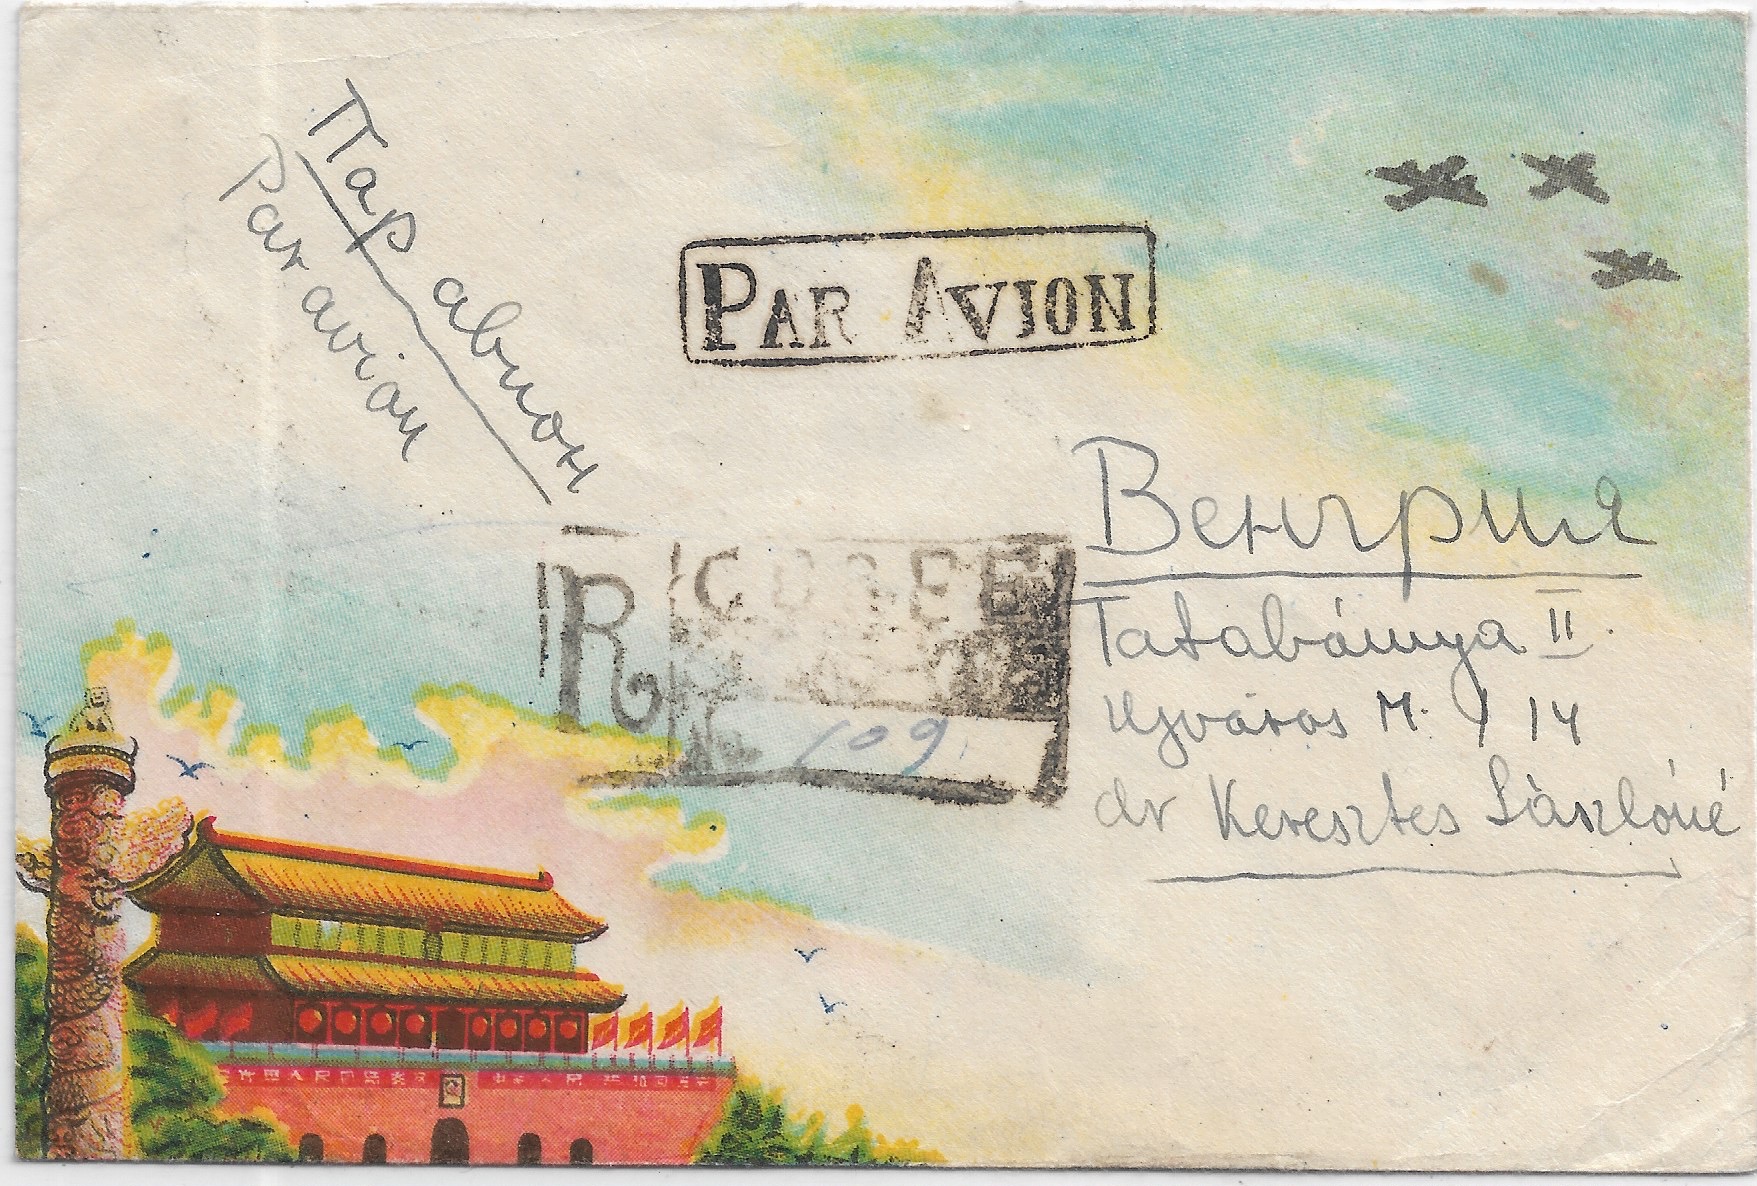 Пар авион
Par avion
PAR AVION
R
109
Венгрия
Tatabánya II.
Ujváros M. 14
dr Keresztes Lászlóné